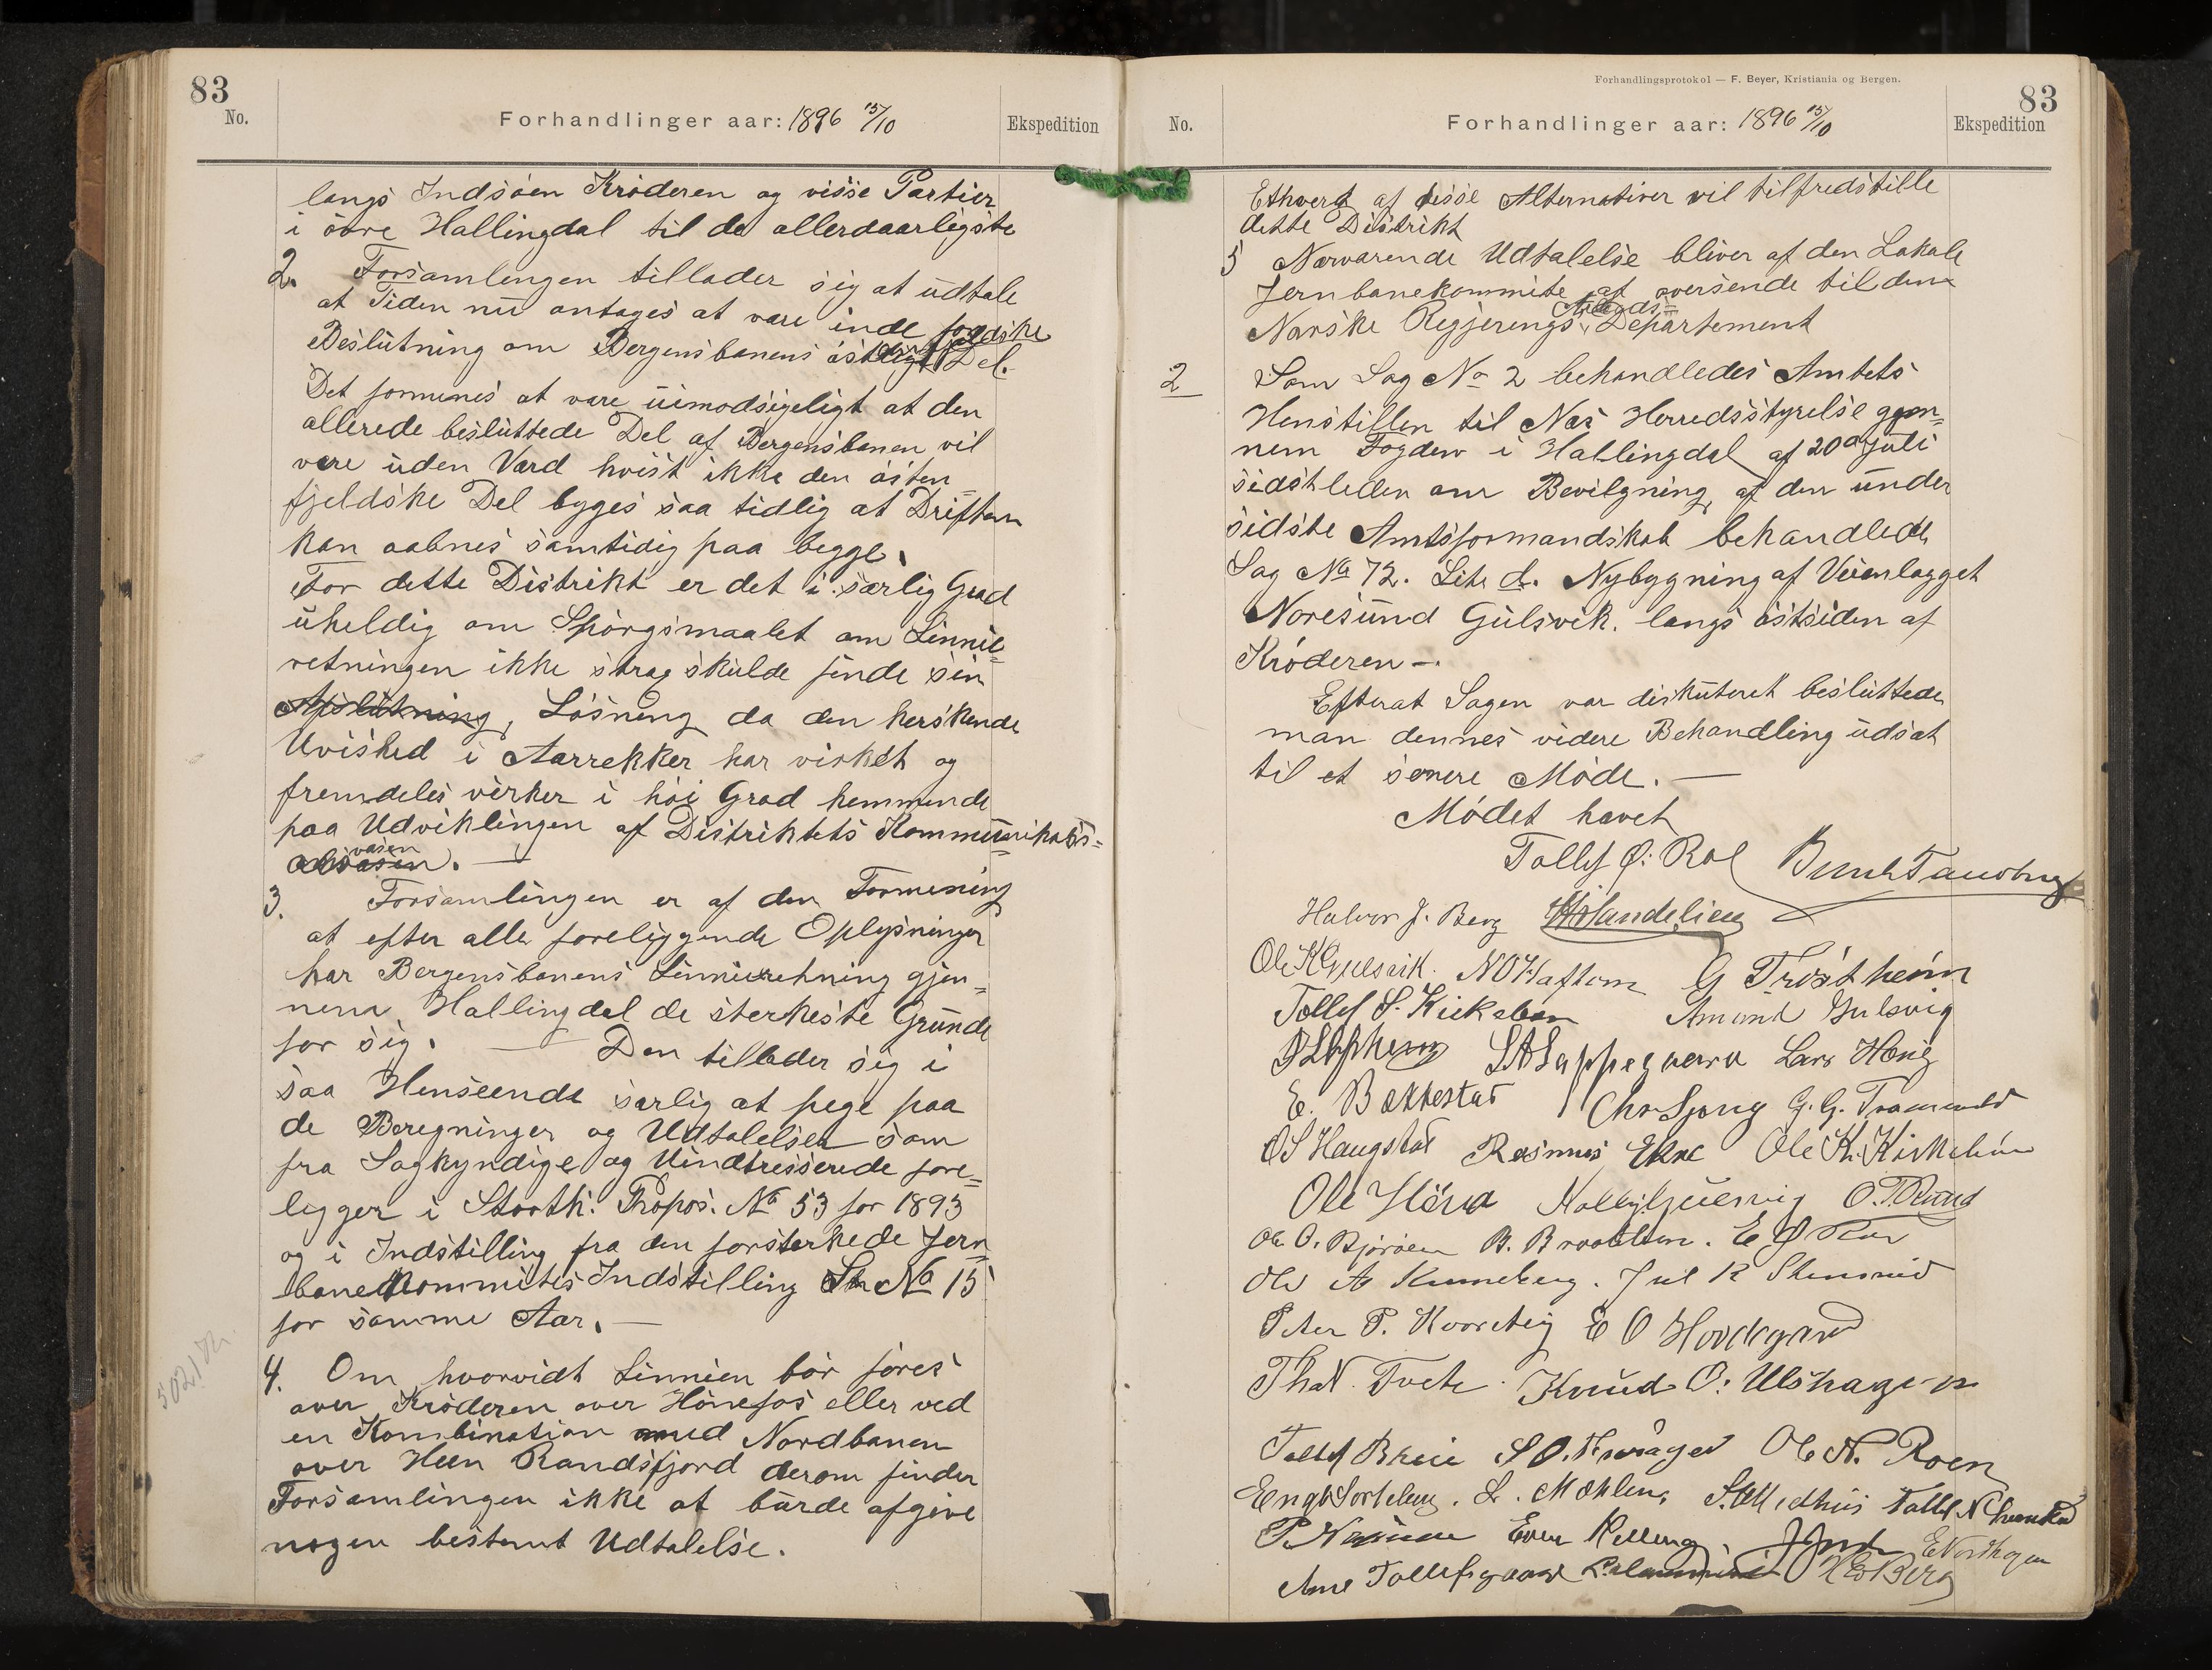 83
No.
Forhandlinger aar: 1896 15/10
Ekspedition
langs Indsøen Krøderen og visse Partier
i øvre Hallingdal til de allerdaarligste
2. Forsamlingen tillader sig at udtale
at Tiden nu antages at være inde for
Beslutning om Bergensbanens østenfjeldske Del.
Det formenes at være uimodsigeligt at den
allerede besluttede Del af Bergensbanen vil
være uden Værd hvist ikke den østen=
fjeldske Del byges saa tidlig at Driften
kan aabnes samtidig paa begge.
For dette Distrikt er det i særlig Grad
uheldig om Spørgsmaalet om Linnie=
retningen ikke strax skulde finde sin
Afslutning, Løsning da den herskende
Uvished i Aarrekker har virket og
fremdeles virker i høi Grad hemmende
paa Udviklingen af Distriktets Kommunikations=
væsen. —
3. Forsamlingen er af den Formening
at efter alle foreliggende Oplysninger
har Bergensbanens Linnieretning gjen=
nem Hallingdal de sterkeste Grunde
for sig. — Den tillader sig i
saa Henseende særlig at pege paa
de Beregninger og Udtalelser som
fra Sagkyndige og Uindtresserede fore=
ligger i Storth. Propos. No 53 for 1893
og i Indstilling fra den forsterkede Jern=
banekommites Indstilling No 15
for samme Aar. —
4. Om hvorvidt Linnien bør føres
over Krøderen over Hønefos eller ved
en Kombination med Nordbanen
over Heen Randsfjord derom finder
Forsamlingen ikke at burde afgive
nogen bestemt Udtalelse.
Forhandlingsprotokol — F. Beyer, Kristiania og Bergen.
83
No.
Forhandlinger aar: 1896 15/10
Ekspedition
Ethvert af disse Alternativer vil tilfredstille
dette Distrikt
5 Nærværende Udtalelse bliver af den Lokale
Jernbanekommite at oversende til den
Norske Regjerings Arbeids= Departement
2 Som Sag No 2 behandledes Amtets
Henstillen til Næs Herredsstyrelse gjen=
nem Fogden i Hallingdal af 20de Juli
sidstleden om Bevilgning af den under
sidste Amtsformandskab behandlede
Sag No 72. Litr d. Nybygning af Veianlægget
Noresund Gulsvik. langs østsiden af
Krøderen —.
Efterat Sagen var diskuteret besluttede
man dennes videre Behandling udsat
til et senere Møde. —
Mødet hævet
Tollef Ø. Roe
Halvor J. Berg
Ole K Gulsvik. N O Haftorn G Trøstheim
Tollef S. Kirkebøen Amund Gulsvig
Lars Hæug
E. Bækkestad G. G. Tramundt
O S Haugstad Rasmus Ekre Ole K. Kirkebøen
Ole Hövra O. T. Rund
Ole O. Bjøröen B. Braathen. E Ø Roe
Ole A Kunneberg. Juel R Stensrud
Peter P. Kvarteig E O Hovdegard
Tho N. Tveto. Knud O: Ulshagen
Tollef Brei S O. Ole N. Roen
L. Mehlen,
Even Kolleng E Nordhagen
Arne Tollefsgaard H E Berg